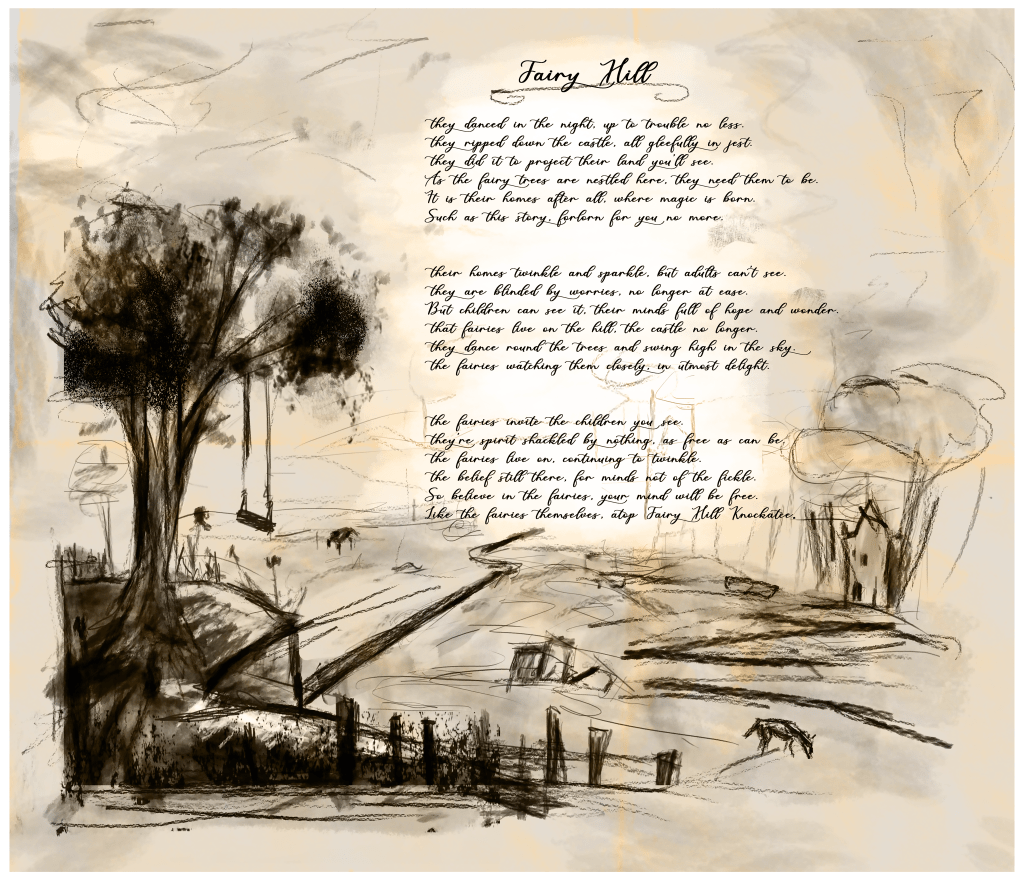 Fairy Hill
they danced in the night, up to trouble no less.
they ripped down the castle, all gleefully in jest.
they did it to project their land you'll see.
As the fairy trees are nestled here, they need them to be.
It is their homes after all, where magic is born.
Such as this story, forlorn for you no more.
their homes twinkle and sparkle, but adults can't see.
they are blinded by worries, no longer at ease.
But children can see it, their minds full of hope and wonder.
that fairies live on the hill, the castle no longer.
they dance round the trees and swing high in the sky.
the fairies watching them closely, in utmost delight.
the fairies invite the children you see.
they're spirit shackled by nothing, as free as can be,
the fairies live on, continuing to twinkle.
the belief still there, for minds not of the fickle.
So believe in the fairies, your mind will be free.
Like the fairies themselves, atop Fairy Hill Knockatee.